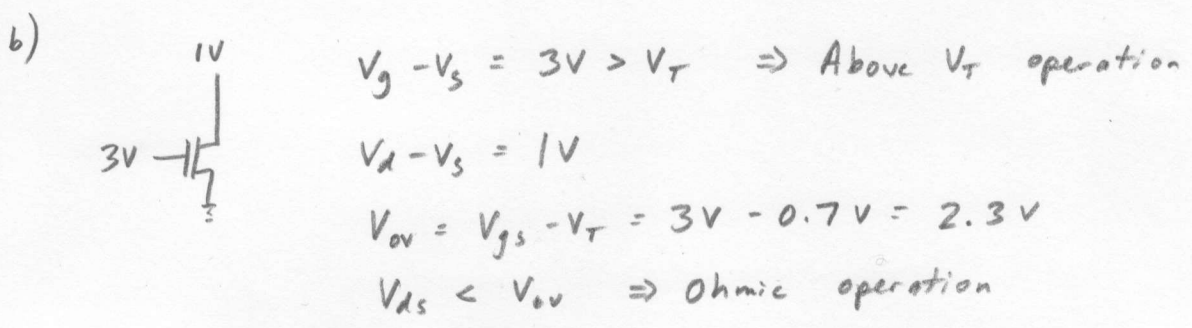 b)
1V
V_g - V_s = 3V > V_T ⇒ Above V_T operation
3V
V_d - V_s = 1V
V_ov = V_gs - V_T = 3V - 0.7V = 2.3V
V_ds < V_ov ⇒ Ohmic operation